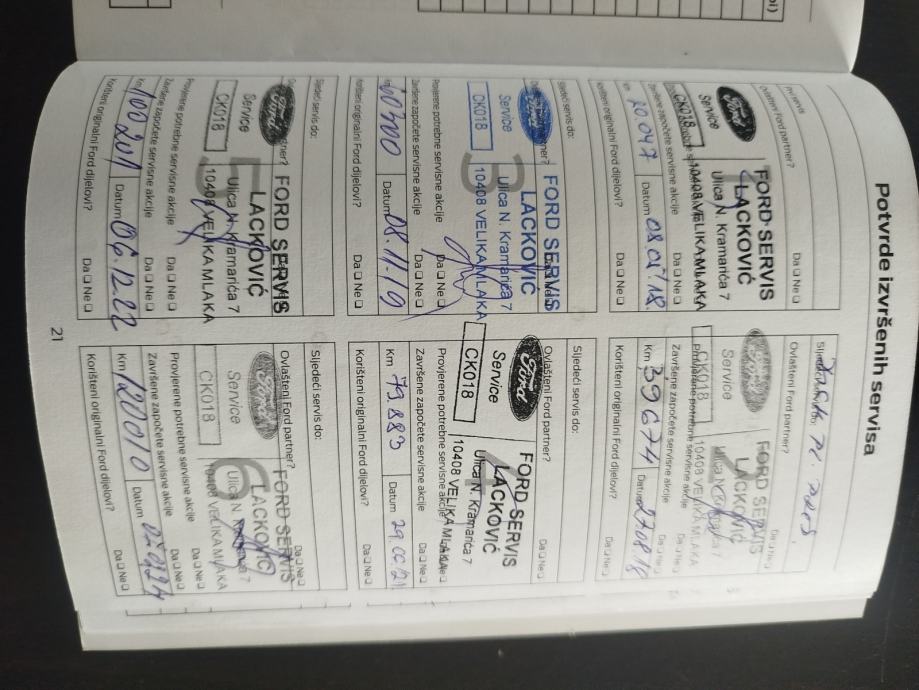 Potvrde izvršenih servisa
Ovlašteni Ford partner? Da ❑ Ne ❑
Ford
Service
CK018
FORD SERVIS
LACKOVIĆ
Ulica N. Kramarića 7
10408 VELIKA MLAKA
Završene započete servisne akcije
Km 20.047 Datum
Korišteni originalni Ford dijelovi? Da ❑ Ne ❑
Ovlašteni Ford partner? Da ❑ Ne ❑
Service
CK018
FORD SERVIS
LACKOVIĆ
10408 VELIKA MLAKA
Provjerene potrebne servisne akcije
Završene započete servisne akcije Da ❑ Ne ❑
Km 39674 Datum 27.08.18
Korišteni originalni Ford dijelovi? Da ❑ Ne ❑
Sljedeći servis do:
3
Ford
Service
CK018
FORD SERVIS
LACKOVIĆ
Ulica N. Kramarića 7
10408 VELIKA MLAKA
Provjerene potrebne servisne akcije Da ❑ Ne ❑
Završene započete servisne akcije Da ❑ Ne ❑
Km 60300 Datum 08.11.19
Korišteni originalni Ford dijelovi? Da ❑ Ne ❑
Sljedeći servis do:
Ovlašteni Ford partner? Da ❑ Ne ❑
4
Ford
Service
CK018
FORD SERVIS
LACKOVIĆ
Ulica N. Kramarića 7
10408 VELIKA MLAKA
Provjerene potrebne servisne akcije
Završene započete servisne akcije Da ❑ Ne ❑
Km 79883 Datum
Korišteni originalni Ford dijelovi? Da ❑ Ne ❑
Sljedeći servis do:
5
Ford
Service
CK018
FORD SERVIS
LACKOVIĆ
Ulica N. Kramarića 7
10408 VELIKA MLAKA
Provjerene potrebne servisne akcije Da ❑ Ne ❑
Završene započete servisne akcije Da ❑ Ne ❑
Km 100201 Datum 06.12.22
Korišteni originalni Ford dijelovi? Da ❑ Ne ❑
Sljedeći servis do:
Ovlašteni Ford partner? Da ❑ Ne ❑
6
Ford
Service
CK018
FORD SERVIS
LACKOVIĆ
Ulica N. Kramarića 7
10408 VELIKA MLAKA
Provjerene potrebne servisne akcije Da ❑ Ne ❑
Završene započete servisne akcije Da ❑ Ne ❑
Km 120010 Datum
Korišteni originalni Ford dijelovi? Da ❑ Ne ❑
21